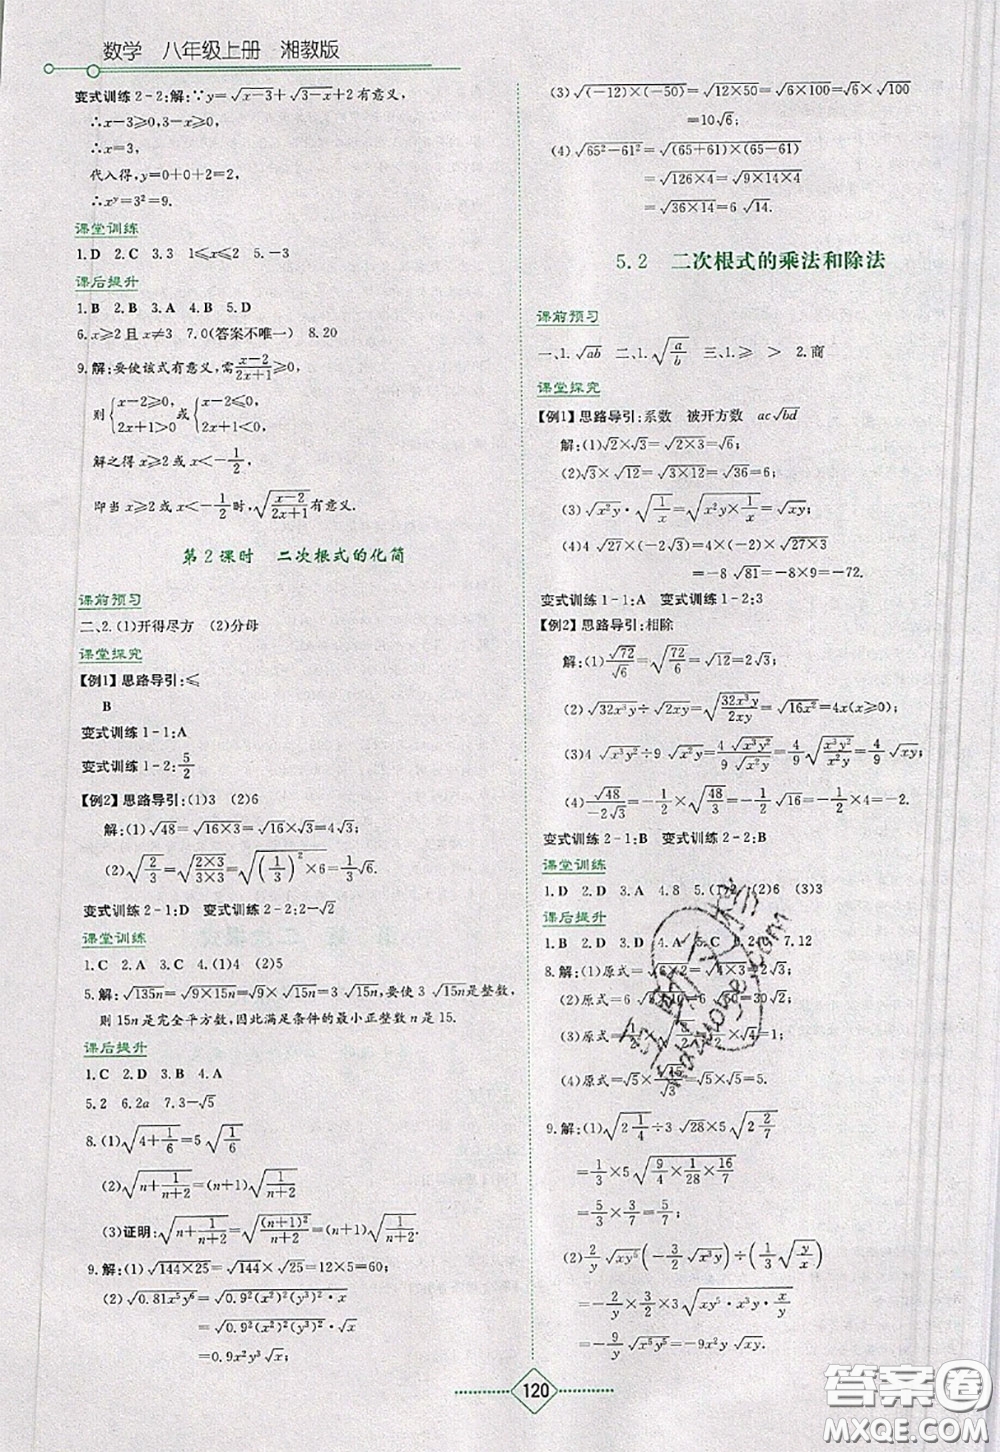 数学　八年级上册　湘教版
变式训练2-2:解:∵y=√(x-3)+√(3-x)+2有意义,
∴x-3≥0,3-x≥0,
∴x=3,
代入得,y=0+0+2=2,
∴x^y=3²=9.
课堂训练
1.D　2.C　3.3　4.1≤x≤2　5.-3
课后提升
1.B　2.B　3.A　4.B　5.D
6.x≥2且x≠3　7.0(答案不唯一)　8.20
9.解:要使该式有意义,需(x-2)/(2x+1)≥0,
则{x-2≥0, 2x+1>0 或{x-2≤0, 2x+1<0,
解之得x≥2或x<-1/2,
即当x≥2或x<-1/2时,√((x-2)/(2x+1))有意义.
第2课时　二次根式的化简
课前预习
二、2.(1)开得尽方　(2)分母
课堂探究
【例1】思路导引:≤
B
变式训练1-1:A
变式训练1-2:5/2
【例2】思路导引:(1)3　(2)6
解:(1)√48=√(16×3)=√16×√3=4√3;
(2)√(2/3)=√((2×3)/(3×3))=√((1/3)²×6)=1/3√6.
变式训练2-1:D　变式训练2-2:2-√2
课堂训练
1.C　2.A　3.A　4.(1)4　(2)5
5.解:√(135n)=√(9×15n)=√9×√(15n)=3√(15n),要使3√(15n)是整数,
则15n是完全平方数,因此满足条件的最小正整数n是15.
课后提升
1.C　2.D　3.B　4.A
5.2　6.2a　7.3-√5
8.(1)√(4+1/6)=5√(1/6)
(2)√(n+1/(n+2))=(n+1)√(1/(n+2))
(3)证明:√(n+1/(n+2))=√((n+1)²/(n+2))=(n+1)√(1/(n+2)).
9.解:(1)√(144×25)=√144×√25=12×5=60;
(2)√(0.81x⁵y⁶)=√(0.9²(x²)²(y³)²·x)
=√(0.9²(x²)²(y³)²)·√x
=0.9x²y³√x;
(3)√((-12)×(-50))=√(12×50)=√(6×100)=√6×√100
=10√6;
(4)√(65²-61²)=√((65+61)×(65-61))
=√(126×4)=√(9×14×4)
=√(36×14)=6√14.
5.2　二次根式的乘法和除法
课前预习
一、1.√(ab)　二、1.√(a/b)　三、1.≥　>　2.商
课堂探究
【例1】思路导引:系数　被开方数　ac√(bd)
解:(1)√2×√3=√(2×3)=√6;
(2)√3×√12=√(3×12)=√36=6;
(3)√(x²y)·√(1/x)=√(x²y×1/x)=√(xy);
(4)4√27×(-2√3)=4×(-2)×√(27×3)
=-8√81=-8×9=-72.
变式训练1-1:A　变式训练1-2:3
【例2】思路导引:相除
解:(1)√72/√6=√(72/6)=√12=2√3;
(2)√(32x³y)÷√(2xy)=√(32x³y/2xy)=√(16x²)=4x(x≥0);
(3)4√(x³y²)÷9√(x²y)=4√(x³y²)/9√(x²y)=4/9√(x³y²/x²y)=4/9√(xy);
(4)√48/(-2√3)=-1/2×√(48/3)=-1/2×√16=-1/2×4=-2.
变式训练2-1:B　变式训练2-2:B
课堂训练
1.D　2.D　3.A　4.8　5.(1)2　(2)6　(3)3
课后提升
1.B　2.D　3.D　4.A　5.C　7.12
8.解:(1)原式=√(6×2)=√(4×3)=2√3.
(2)原式=6=6√50=30√2;
(4)原式=√5×=√5×√5=5.
9.解:(1)√(2 1/4)÷3√28×5√(2 2/7)
=1/3×5√(9/4×1/28×16/7)
=5/3×3/7=5/7;
(2)2/y√(xy⁵)(-3/2√(x³y))÷(1/3√(y/x))
=-2/y×3/2×3√(xy⁵·x³y·x/y)
=-9/y√(x⁵y⁵)=-9x²y√(xy).
120
答案圈
MXQE.COM